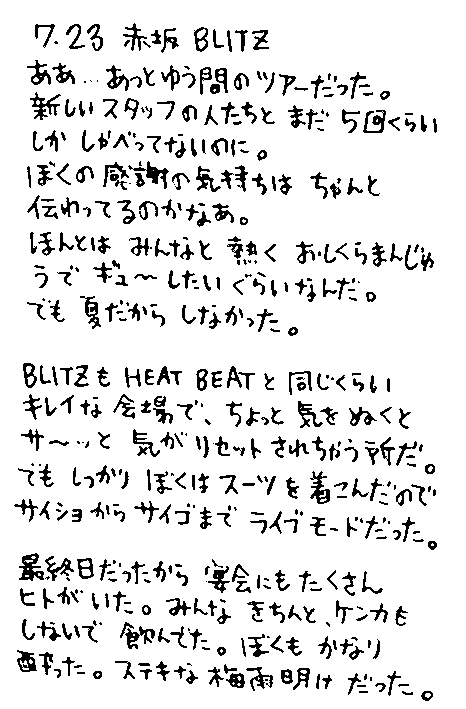 7.23 赤坂 BLITZ
ああ…あっとゆう間のツアーだった。
新しいスタッフの人たちと まだ 5回くらい
しか しゃべってないのに。
ぼくの 感謝の気持ちは ちゃんと
伝わってるのかなあ。
ほんとは みんなと 熱く おしくらまんじゅ
うで ギュ〜 したい ぐらい なんだ。
でも 夏だから しなかった。
BLITZも HEAT BEATと 同じくらい
キレイな 会場で、ちょっと 気を ぬくと
サ〜ッと 気が リセットされちゃう所だ。
でも しっかり ぼくは スーツを 着こんだので
サイショから サイゴまで ライブモードだった。
最終日だったから 宴会にも たくさん
ヒトが いた。みんな きちんと、ケンカも
しないで 飲んでた。ぼくも かなり
酔った。ステキな 梅雨明け だった。